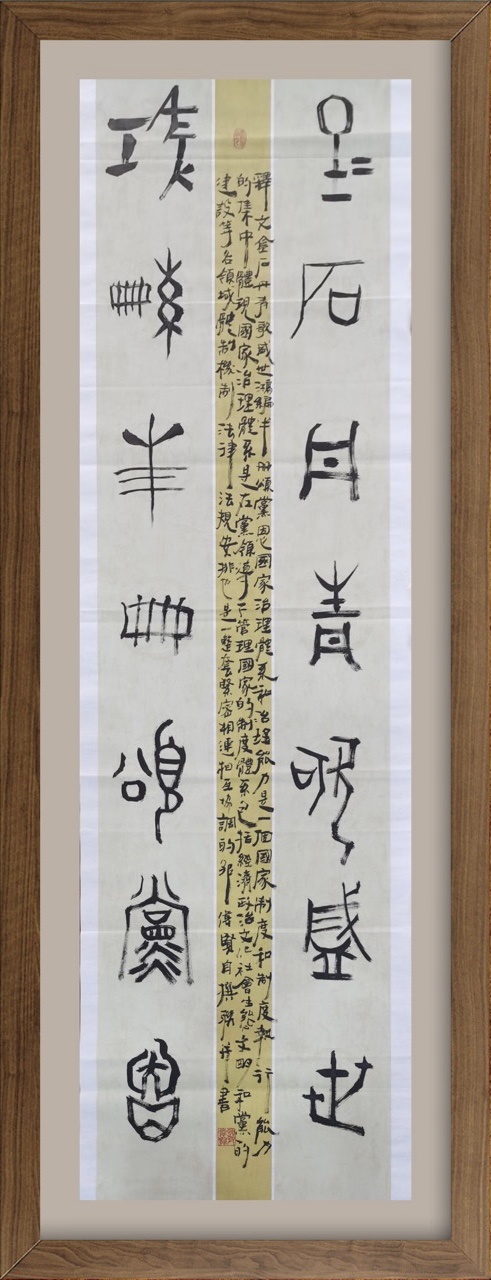 金石丹青歌盛世
鴻編半冊頌黨恩
釋文金石丹青歌盛世鴻編半冊頌黨恩國家治理體系和治理能力是一個國家制度和制度執行能力
的集中體現國家治理體系是在黨領導下管理國家的制度體系包括經濟政治文化社會生態文明和黨的
建設等各領域體制機制法律法規安排也是一整套緊密相連相互協調的自撰聯并書